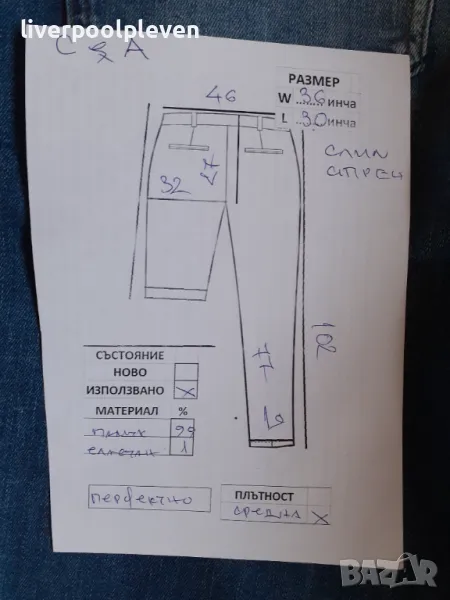 liverpoolpleven
C & A
РАЗМЕР
46
W 36 инча
L 30 инча
СЛИМ
СТРЕЧ
27
32
102
77
СЪСТОЯНИЕ
НОВО
ИЗПОЛЗВАНО X
МАТЕРИАЛ %
памук 99
еластан 1
перфектно
ПЛЪТНОСТ
средна X
BAZAR